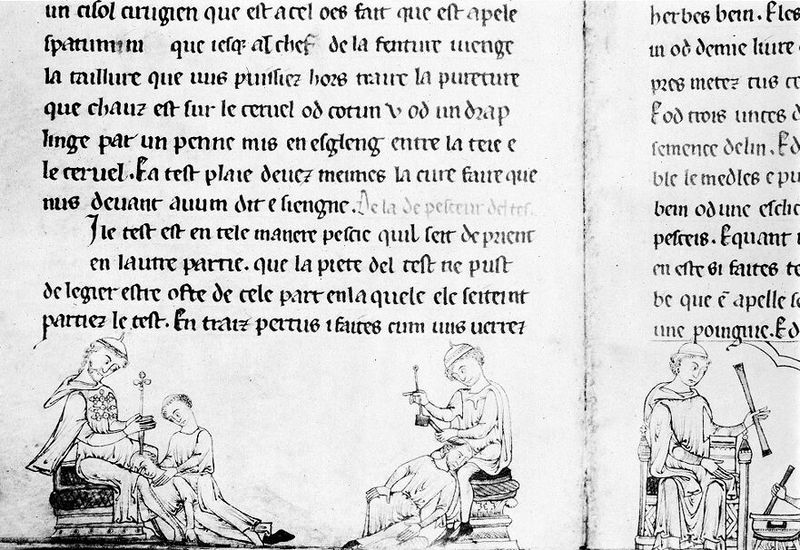 un cisol cirugien que est a cel oes fait que est apele
spatumini que iesqz al chef de la fenture uienge
la taillure que uus puissiez hors traire la pureture
que chauz est sur le ceruel od cotun v od un drap
linge par un penne mis en esgleng entre la teie e
le ceruel. Ea test plaie deuez meimes la cure faire que
nus deuant auum dit e siengne. De la de pesceur del tes.
I le test est en tele manere pescie quil seit deprient
en lautre partie. que la piete del test ne pust
de legier estre oste de cele part en la quele ele seit eint
partiez le test. En traiz pertus i faites cum uus uerrez
herbes bein. Eles
un od demie liure
pres metez tus ce
E od trois unces d
semence de lin. Ed
ble le medles e pu
bein od une esclic
pesceis. E quant
en este si faites te
be que e apelle s
une poingnie. Ed